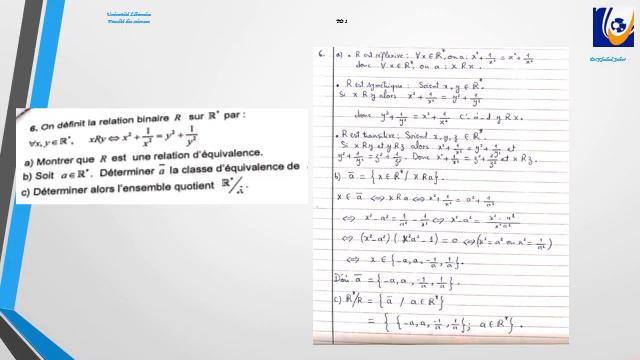 Université Libanaise
Faculté des sciences
TD 1
6. On définit la relation binaire R sur ℝ* par :
∀x, y ∈ ℝ*, xRy ⇔ x² + 1/x² = y² + 1/y²
a) Montrer que R est une relation d'équivalence.
b) Soit a ∈ ℝ*. Déterminer ā la classe d'équivalence de
c) Déterminer alors l'ensemble quotient ℝ*/R.
6. a) • R est réflexive : ∀x ∈ ℝ*, on a : x² + 1/x² = x² + 1/x²
donc ∀x ∈ ℝ*, on a : x R x.
• R est symétrique : Soient x, y ∈ ℝ*.
Si x R y alors x² + 1/x² = y² + 1/y²
donc y² + 1/y² = x² + 1/x² c.à.d y R x.
• R est transitive : Soient x, y, z ∈ ℝ*.
Si x R y et y R z alors x² + 1/x² = y² + 1/y² et
y² + 1/y² = z² + 1/z². Donc x² + 1/x² = z² + 1/z² et x R z.
b) ā = {x ∈ ℝ* / x R a}
x ∈ ā ⇔ x R a ⇔ x² + 1/x² = a² + 1/a²
⇔ x² - a² = 1/a² - 1/x² ⇔ x² - a² = (x² - a²)/(x²a²)
⇔ (x² - a²)(x²a² - 1) = 0 ⇔ (x² = a² ou x² = 1/a²)
⇔ x ∈ {-a, a, -1/a, 1/a}.
D'où ā = {-a, a, -1/a, 1/a}.
c) ℝ*/R = {ā / a ∈ ℝ*}
= {{-a, a, -1/a, 1/a}; a ∈ ℝ*}.